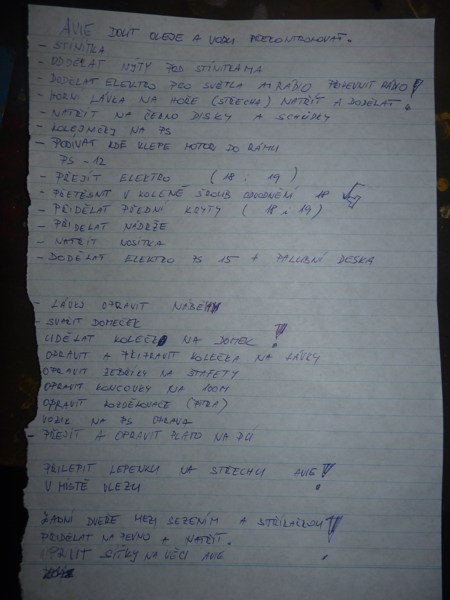 AVIE DOLIT OLEJE A VODU PŘEKONTROLOVAT.
- STÍNÍTKA
- ODDĚLAT NÝTY POD STÍNÍTKAMA
- DODĚLAT ELEKTRO PRO SVĚTLA A RÁDIO POPEVNIT RÁDIO!
- HORNÍ LÁVKA NA HOŘE (STŘECHA) NATŘÍT A DODĚLAT!
- NATŘÍT NA ČERNO DISKY A SCHŮDKY
- KOLEJNIČKY NA PS
- PODÍVAT KDE KLEPE MOTOR DO RÁMU
PS - 12
- PŘEJÍT ELEKTRO (18. 19)
- PŘETĚSNIT V KOLENĚ ŠROUB ODVODNĚNÍ 18
- PŘIDĚLAT PŘEDNÍ KRYTY (18. 19)
- PŘIDĚLAT NÁDRŽE
- NATŘÍT NOSÍTKA
- DODĚLAT ELEKTRO PS 15 + PALUBNÍ DESKA
- LÁVKU OPRAVIT
- SVAŘIT DOMEČEK
UDĚLAT KOLEČKO NA DOMEK!
OPRAVIT A PŘIPRAVIT KOLEČKA NA LÁVKY
OPRAVIT ŽEBŘÍKY NA ŠTAFETY
OPRAVIT KONCOVKY NA 100M
OPRAVIT ROZDĚLOVAČE (PATRA)
VOZÍK NA PS OPRAVA
- PŘEJÍT A OPRAVIT PLATO NA PÚ
PŘILEPIT LEPENKU NA STŘECHU AVIE!
V MÍSTĚ VLEZU
ZADNÍ DVEŘE MEZI SEZENÍM A STŘÍKAČKOU!
PŘIDĚLAT NA PEVNO + NATŘÍT.
UPRAVIT SÍŤKY NA VĚCI AVIE!